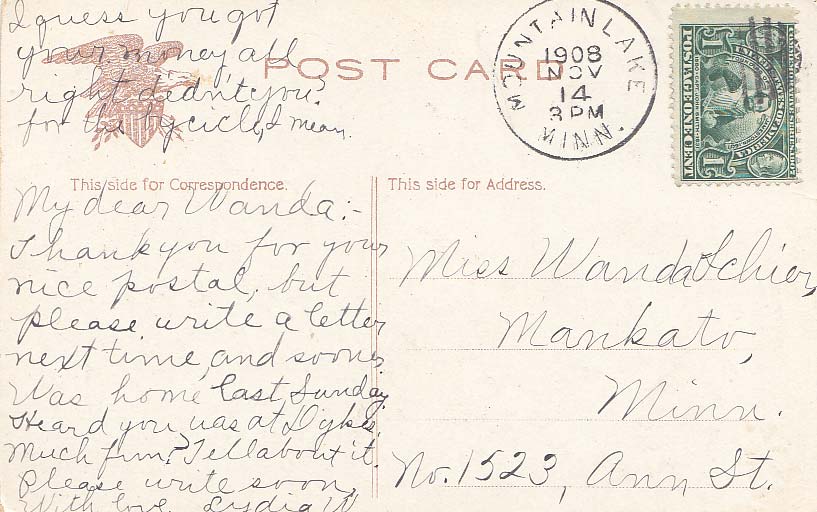 I guess you got
your money all
right didn't you?
for the bycicle, I mean.
POST CARD
MOUNTAIN LAKE
1908
NOV
14
3 PM
MINN.
This side for Correspondence.
My dear Wanda:-
Thank you for your
nice postal, but
please write a letter
next time, and sooner.
Was home last Sunday.
Heard you was at Dykes.
Much fun? Tell about it.
Please write soon,
With love, Lydia W
This side for Address.
Miss Wanda Schier,
Mankato,
Minn.
No. 1523, Ann St.
1
POSTAGE ONE CENT
1